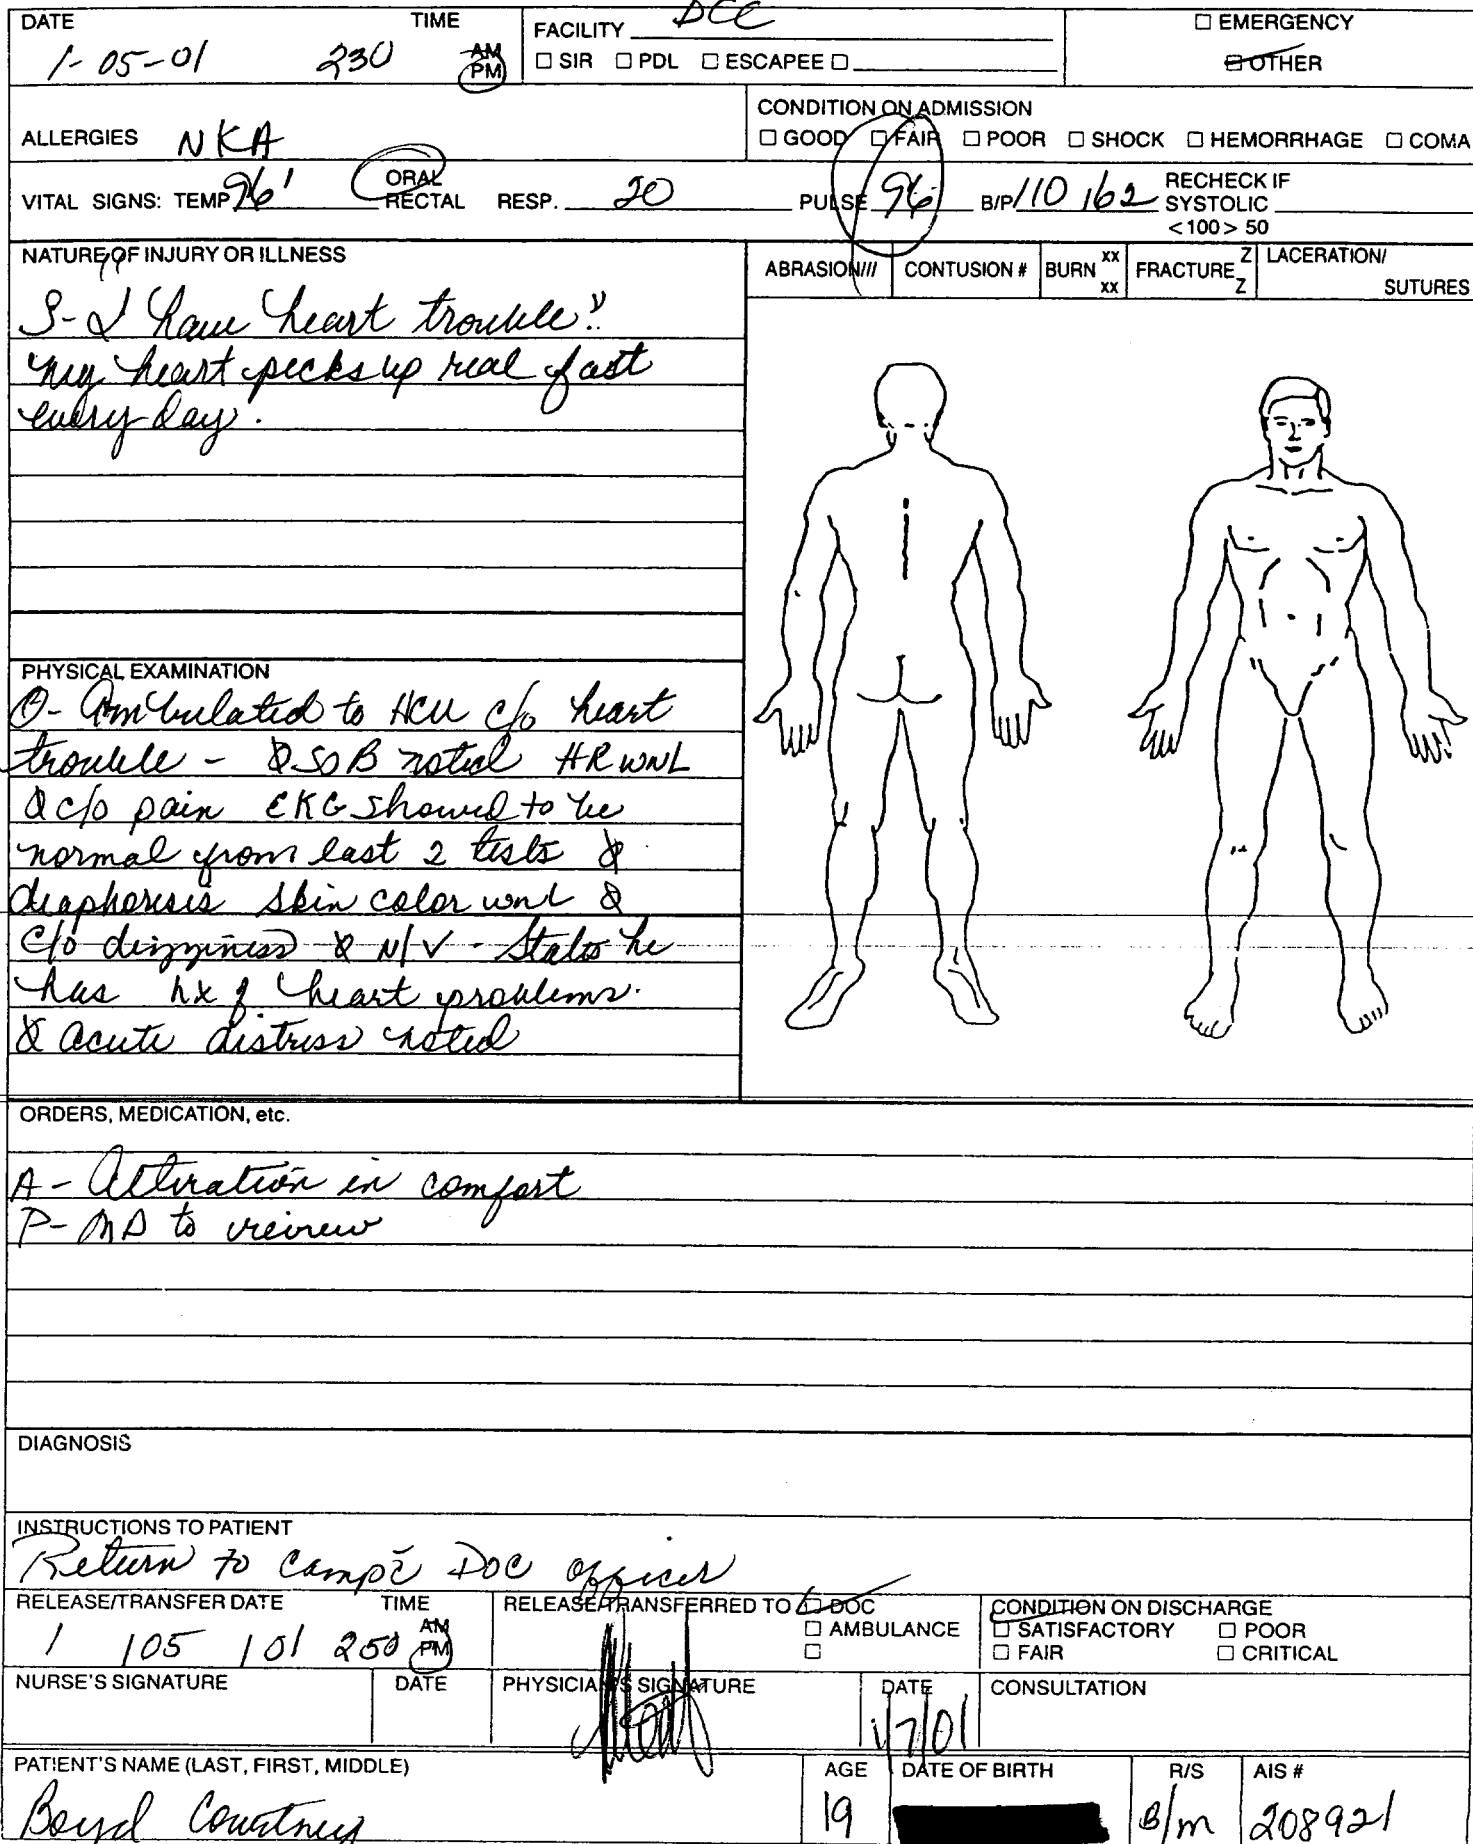 DATE TIME FACILITY DCC ☐ EMERGENCY
1-05-01 230 AM PM ☐ SIR ☐ PDL ☐ ESCAPEE ☐ ☐ OTHER
CONDITION ON ADMISSION
ALLERGIES NKA ☐ GOOD ☐ FAIR ☐ POOR ☐ SHOCK ☐ HEMORRHAGE ☐ COMA
VITAL SIGNS: TEMP 96' ORAL RECTAL RESP. 20 PULSE 96 B/P 110 / 62 RECHECK IF SYSTOLIC <100> 50
NATURE OF INJURY OR ILLNESS ABRASION/// CONTUSION # BURN xx xx FRACTURE Z Z LACERATION/ SUTURES
S- "I have heart trouble."
my heart picks up real fast
every day.
PHYSICAL EXAMINATION
O- Ambulated to HCU c/o heart
trouble - Ø SOB noted HR WNL
Ø c/o pain EKG showed to be
normal from last 2 tests Ø
diaphoresis skin color wnl Ø
c/o dizziness Ø N/V - States he
has hx of heart problems.
Ø acute distress noted
ORDERS, MEDICATION, etc.
A- Alteration in comfort
P- MD to reivew
DIAGNOSIS
INSTRUCTIONS TO PATIENT
Return to camp c̄ DOC officer
RELEASE/TRANSFER DATE TIME RELEASE/TRANSFERRED TO ☐ DOC CONDITION ON DISCHARGE
1 / 05 / 01 250 AM PM ☐ AMBULANCE ☐ SATISFACTORY ☐ POOR
☐ ☐ FAIR ☐ CRITICAL
NURSE'S SIGNATURE DATE PHYSICIAN'S SIGNATURE DATE CONSULTATION
1/7/01
PATIENT'S NAME (LAST, FIRST, MIDDLE) AGE DATE OF BIRTH R/S AIS #
Boyd Courtney 19 B/m 208921